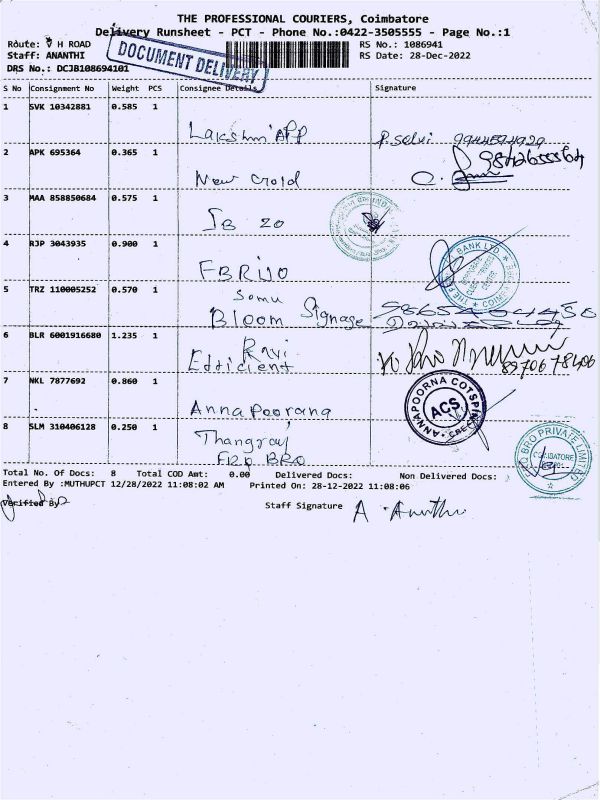 THE PROFESSIONAL COURIERS, Coimbatore
Delivery Runsheet - PCT - Phone No.:0422-3505555 - Page No.:1
Route: V H ROAD
RS No.: 1086941
Staff: ANANTHI
DOCUMENT DELIVERY
RS Date: 28-Dec-2022
DRS No.: DCJB108694101
S No Consignment No Weight PCS Consignee Details Signature
1 SVK 10342881 0.585 1
Lakshmi APP P. Selvi 9944594929
2 APK 695364 0.365 1 9842655564
New
3 MAA 858850684 0.575 1
SB 20
4 RJP 3043935 0.900 1
BANK LTD
5 TRZ 110005252 0.570 1
Somu
Bloom Signage
6 BLR 6001916680 1.235 1
Ravi
Efficient 8970678406
7 NKL 7877692 0.860 1
Annapoorana
ANNAPOORNA COTSPIN
ACS
8 SLM 310406128 0.250 1
Thangraj
BRO
BRO PRIVATE LIMITED
COIMBATORE
Total No. Of Docs: 8 Total COD Amt: 0.00 Delivered Docs: Non Delivered Docs:
Entered By :MUTHUPCT 12/28/2022 11:08:02 AM Printed On: 28-12-2022 11:08:06
Verified By
Staff Signature A. Ananthi